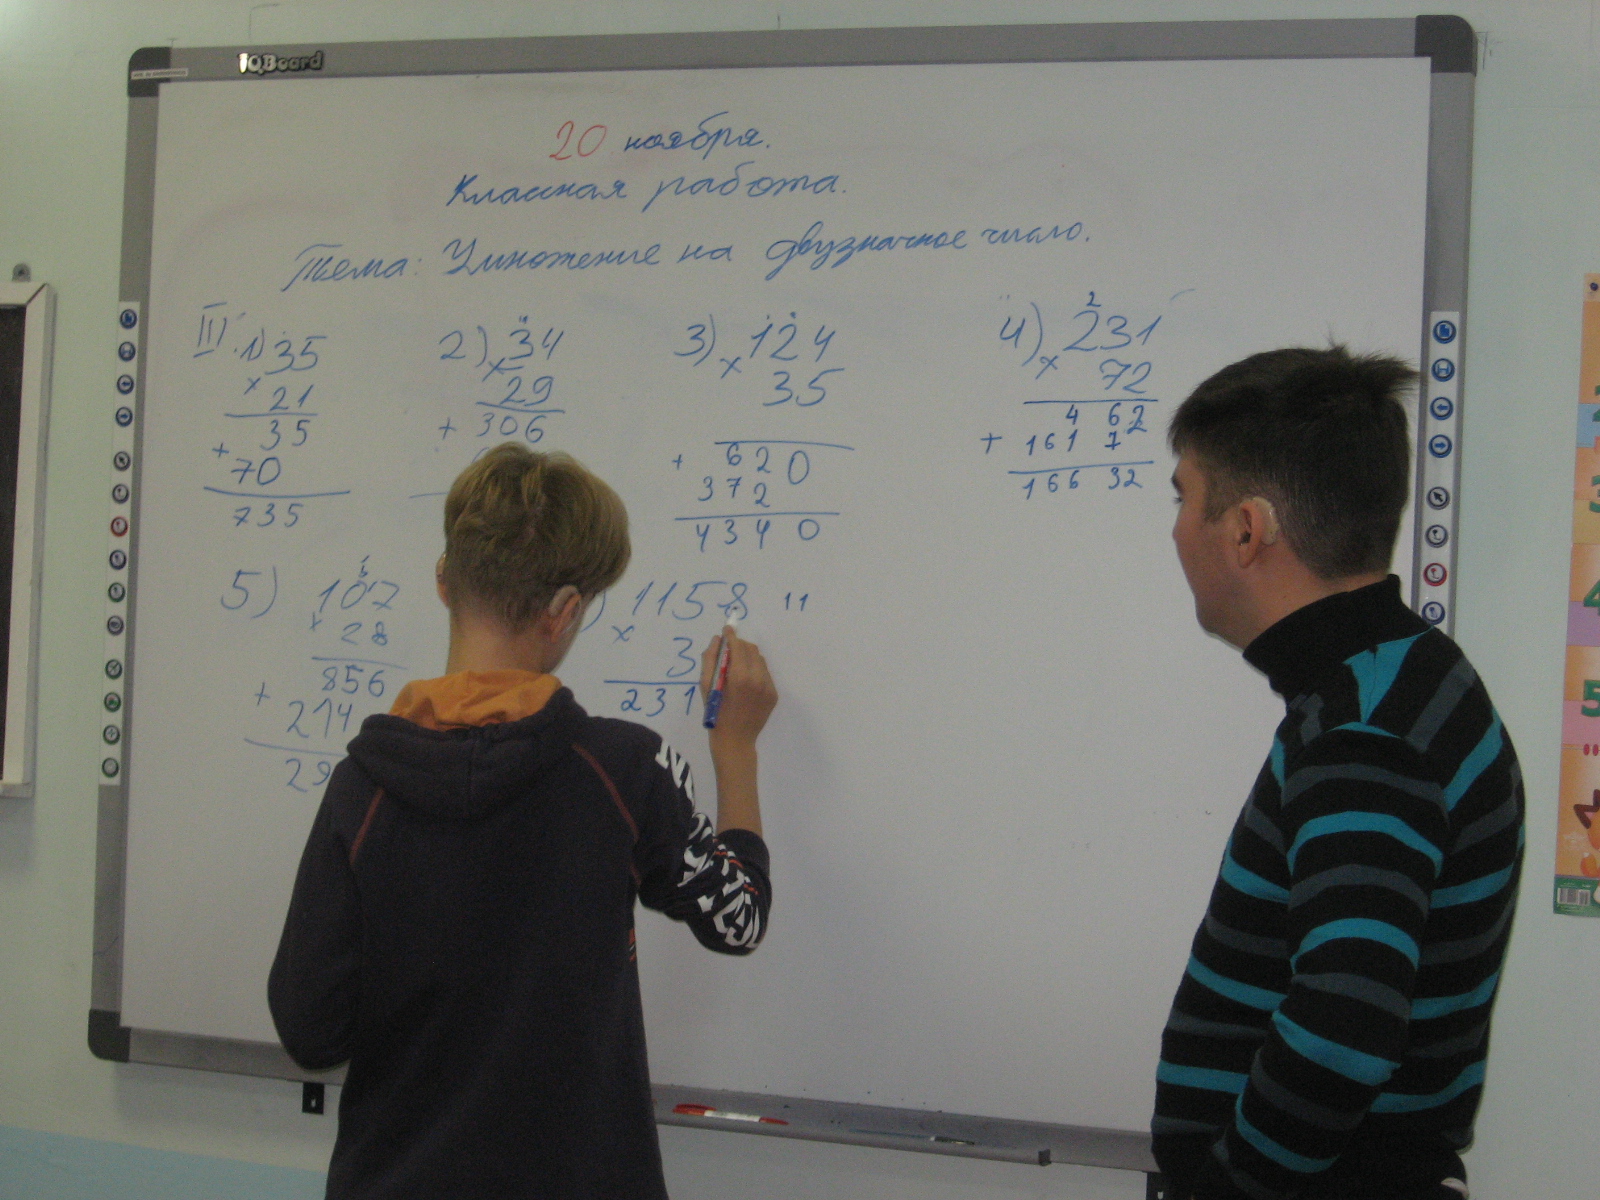 IQBoard
20 ноября.
Классная работа.
Тема: Умножение на двузначное число.
III. 1) 35
× 21
35
+ 70
735
2) 34
× 29
+ 306
3) 124
× 35
+ 620
372
4340
2
4) 231
× 72
462
+ 1617
16632
5) 107
× 28
856
+ 214
29
) 1158 11
× 3
231